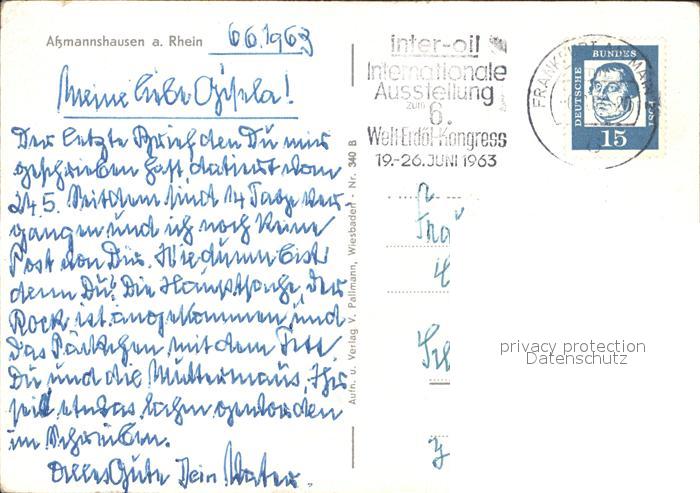 Aßmannshausen a. Rhein 6.6.1963
Meine liebe Gisela!
Der letzte Brief den Du mir
geschrieben hast, datiert vom
24.5. Seitdem sind 14 Tage ver-
gangen und ich noch keine
Post von Dir. Wie dumm bist
denn Du? Die Hauptsache der
Rock ist angekommen und
das Päckchen mit dem Fett
Du und die Muttermaus, Ihr
seid etwas lahm geworden
im Schreiben.
Alles Gute Dein Vater.
Aufn. u. Verlag V. Pallmann, Wiesbaden - Nr. 340 B
inter-oil
Internationale
Ausstellung
zum
6.
Welt-Erdöl-Kongress
19.-26. JUNI 1963
FRANKFURT AM MAIN
DEUTSCHE BUNDES
15
Frä
privacy protection
Datenschutz